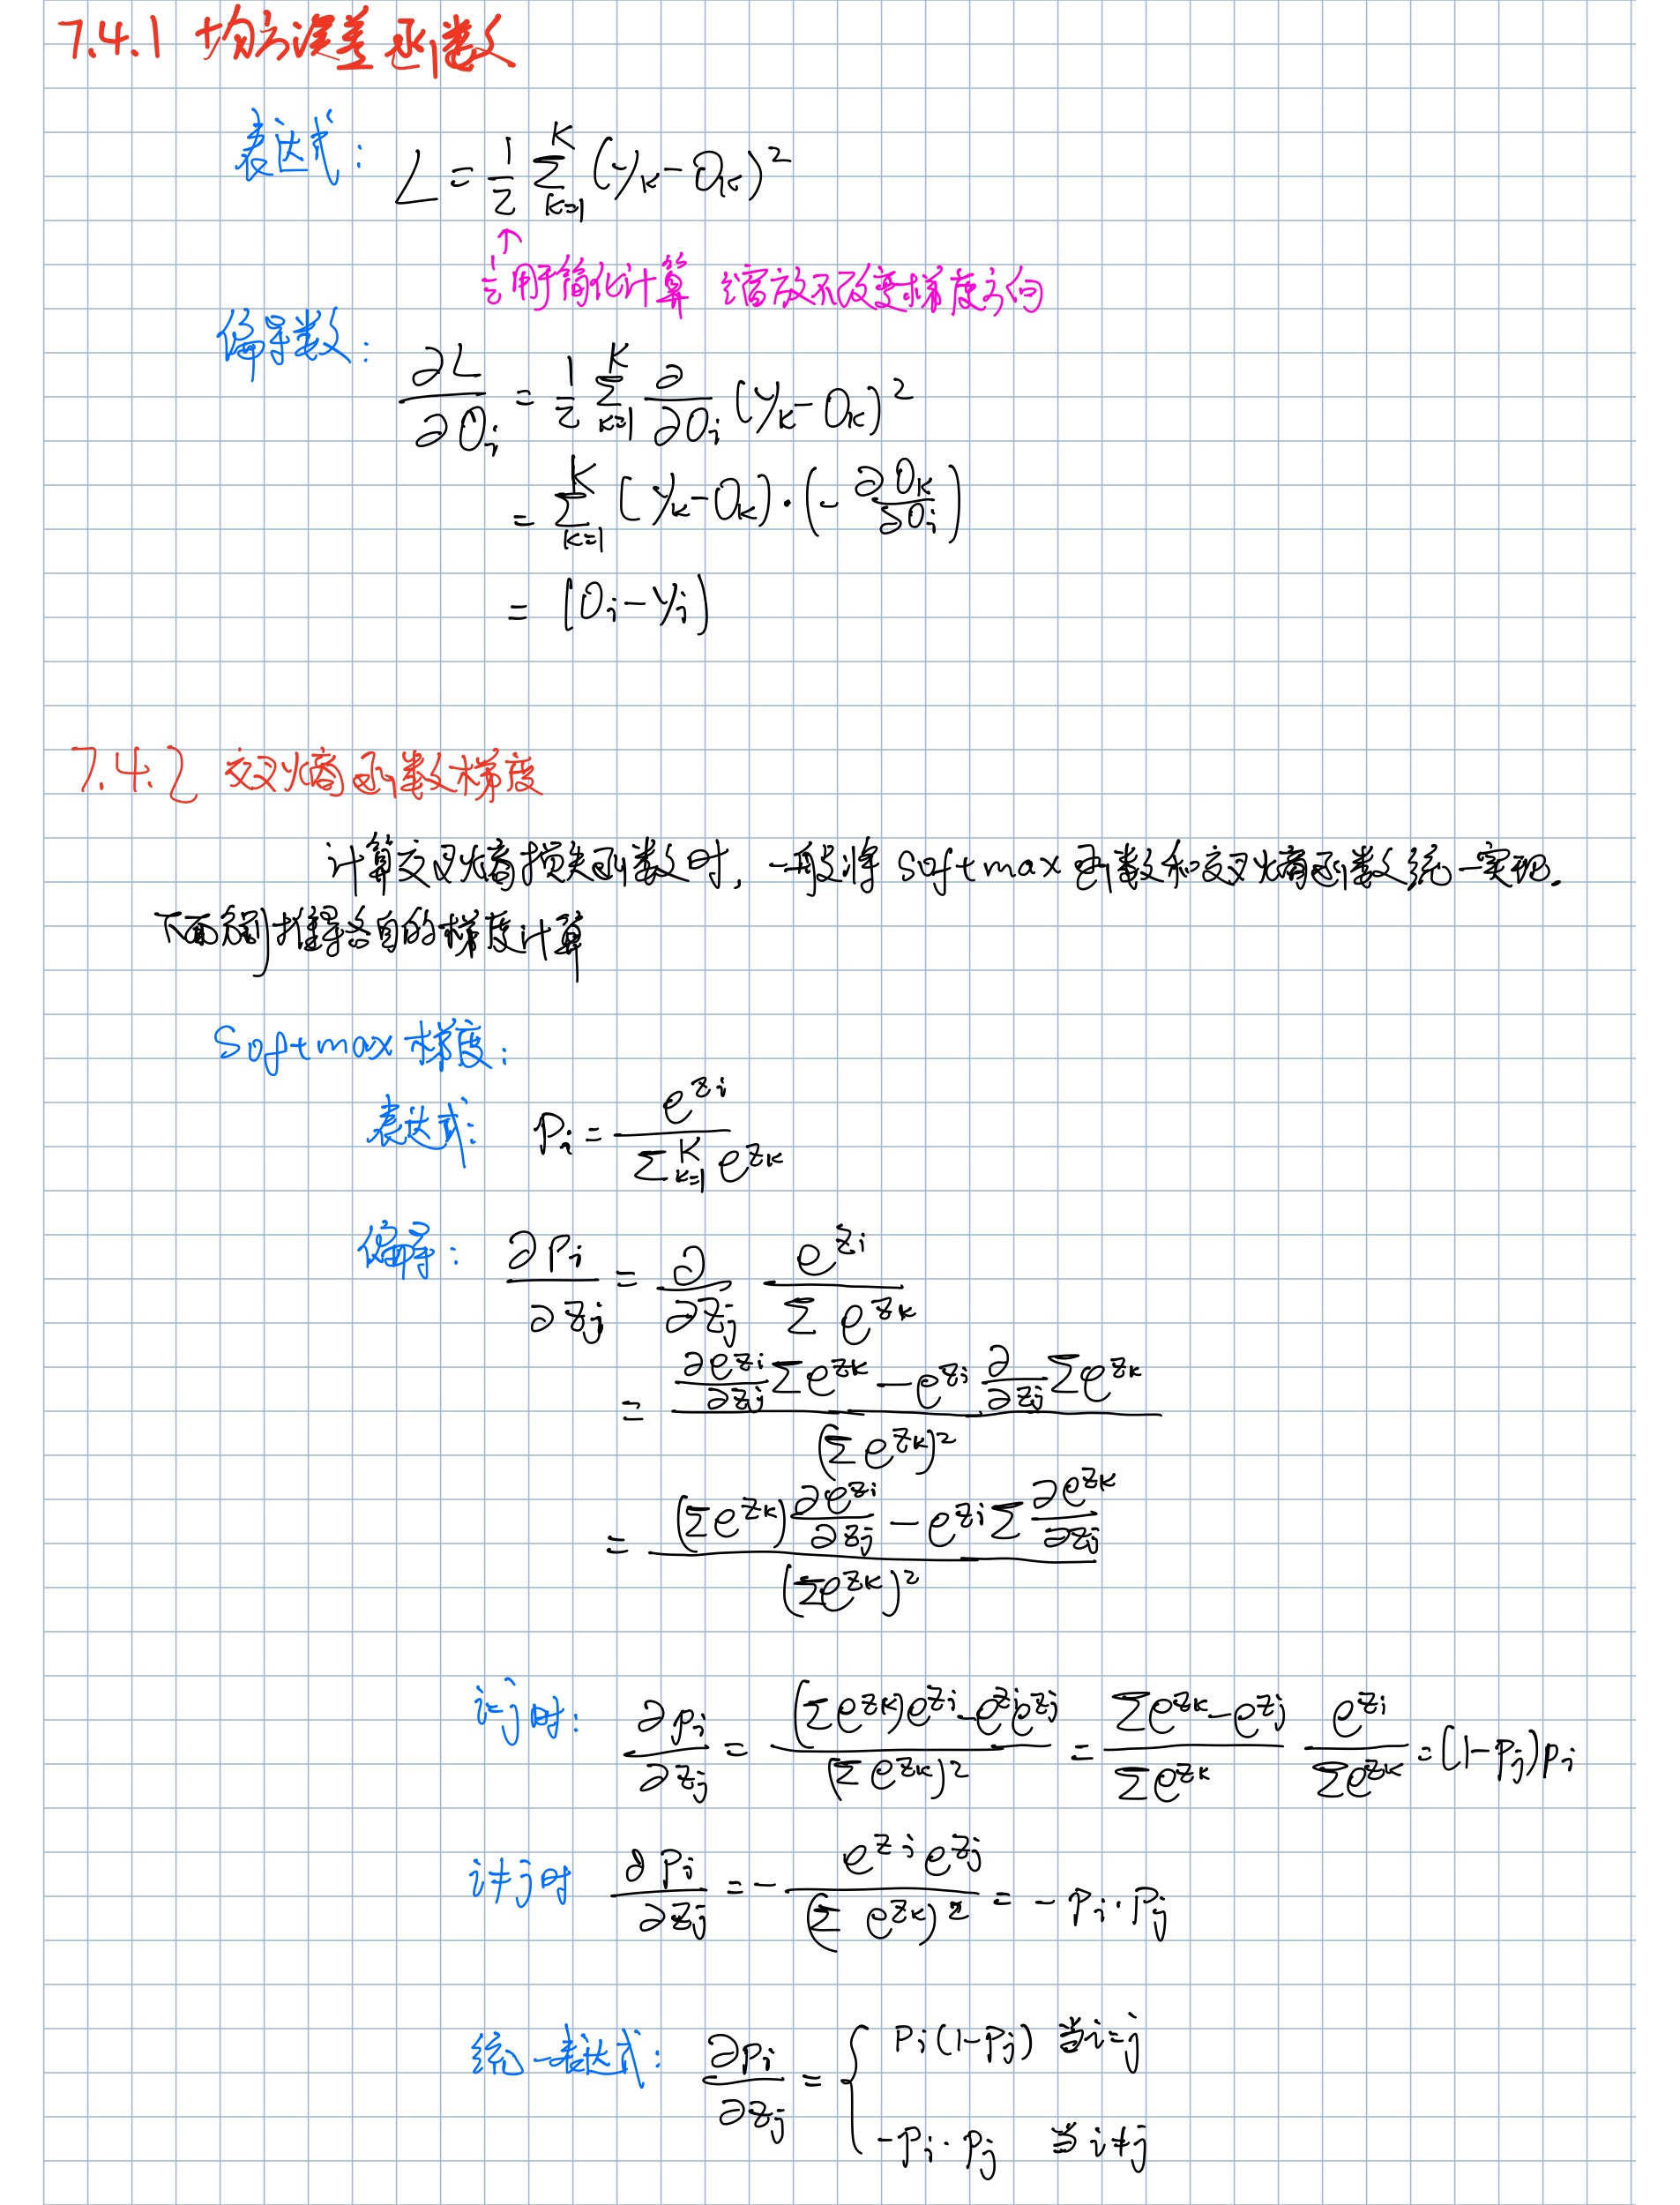 7.4.1 均方误差函数
表达式: L = 1/2 ∑_{k=1}^{K} (y_k - O_k)^2
↑
1/2用于简化计算 缩放不改变梯度方向
偏导数: ∂L/∂O_i = 1/2 ∑_{k=1}^{K} ∂/∂O_i (y_k - O_k)^2
= ∑_{k=1}^{K} (y_k - O_k) · (- ∂O_k/∂O_i)
= (O_i - y_i)
7.4.2 交叉熵函数梯度
计算交叉熵损失函数时, 一般将 Softmax 函数和交叉熵函数统一实现.
下面分别推导各自的梯度计算
Softmax 梯度:
表达式: P_i = e^{z_i} / ∑_{k=1}^{K} e^{z_k}
偏导: ∂P_i/∂z_j = ∂/∂z_j e^{z_i} / ∑ e^{z_k}
= (∂e^{z_i}/∂z_j ∑e^{z_k} - e^{z_i} ∂/∂z_j ∑e^{z_k}) / (∑e^{z_k})^2
= ((∑e^{z_k}) ∂e^{z_i}/∂z_j - e^{z_i} ∑ ∂e^{z_k}/∂z_j) / (∑e^{z_k})^2
i=j时: ∂p_i/∂z_j = ((∑e^{z_k})e^{z_i} - e^{z_i}e^{z_j}) / (∑e^{z_k})^2 = (∑e^{z_k} - e^{z_j}) / ∑e^{z_k} e^{z_i} / ∑e^{z_k} = (1-p_j)p_i
i≠j时 ∂p_i/∂z_j = - e^{z_i} e^{z_j} / (∑ e^{z_k})^2 = - p_i · p_j
统一表达式: ∂p_i/∂z_j = { p_i(1-p_j) 当i=j
-p_i · p_j 当i≠j